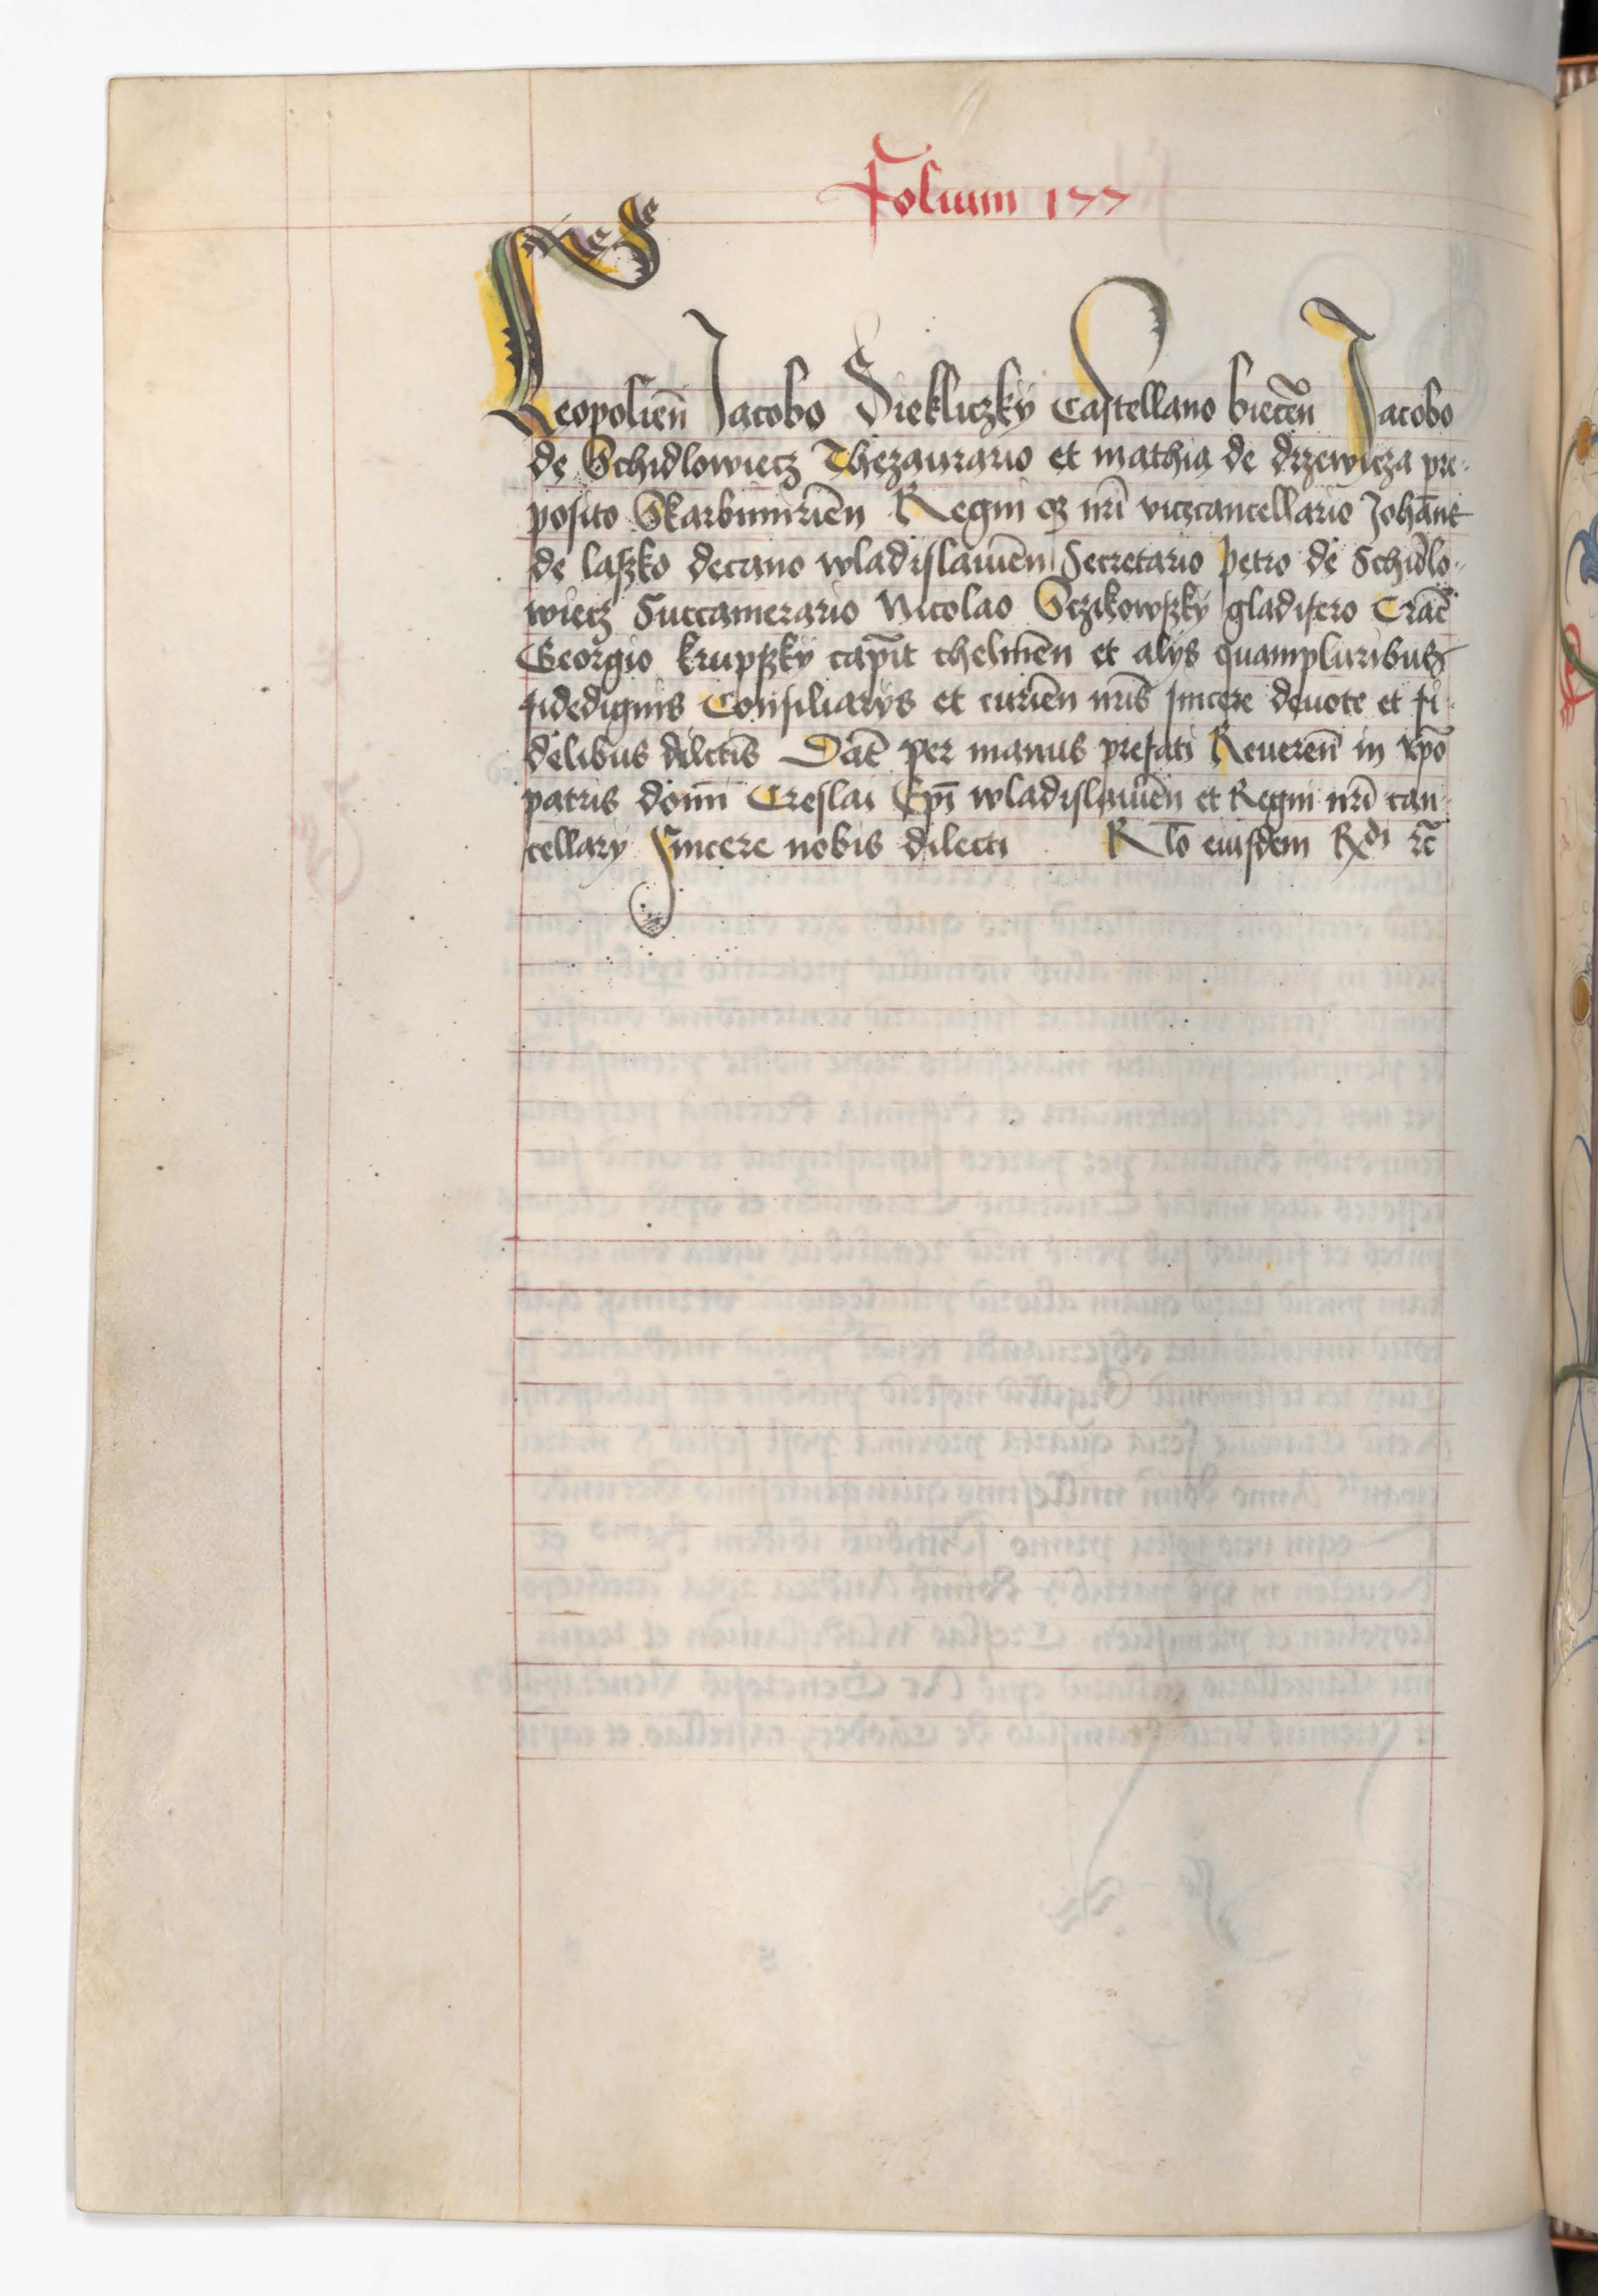 Folium 177
Leopolień Jacobo Siekliczky Castellano bieceń Jacobo
de Schidlowiecz Thezaurario et mathia de drzewicza pre-
posito Skarbimirień Regni qz nrī vicecancellario Johāne
de lassko decano wladislauień Secretario petro de Schidlo-
wiecz Succamerario Nicolao Sczikowszky gladifero Crac̄
Georgio krupszky capīt chelmeń et alys quampluribus
fidedignis Consiliarys et curień nrīs sincere deuote et fi-
delibus dilctis Dat̄ per manus prefati Reuereń in xp̄o
patris domī Creslai Ep̄i wladislauień et Regni nrī can-
cellary Sincere nobis dilecti Rlō eiusdem Rdi rc̄